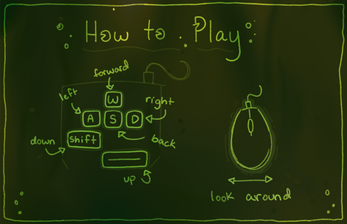 How to Play
forward
left
W
right
A S D
down
shift
back
up
look around